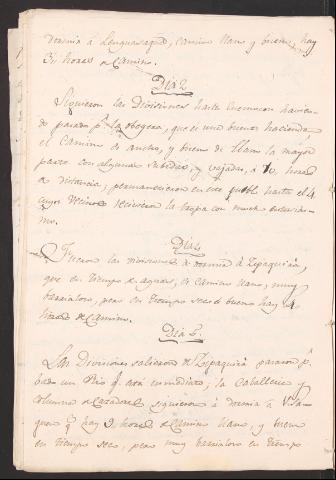 dormir á Lenguasaque, camino llano y bueno, hay
3½ horas de Camino.
Dia 2
Siguieron las Divisiones hasta Enemocon havien-
do parado pr. la obegera, que es una buena hacienda
el Camino es ancho, y bueno de llano la mayor
parte con algunas subidas, y vajadas, á 10 horas
de distancia, permanecieron en este puebl. hasta el 4
cuyos Vecinos recivieron la tropa con mucho entusias-
mo.
Dia 4
Fueron las divisiones á dormir á Zipaquirá,
que en tiempo de aguas, es camino llano, muy
barrialoso, pero en tiempo seco es bueno hay 4
horas de Camino.
Dia 5
Las Divisiones salieron de Zipaquirá pasaron pr.
un Rio qe. está inmediato, la Caballeria y
Columna de Cazadores siguieron á dormir á
qe. hay 9 horas de Camino llano, y bueno
en tiempo seco, pero muy barrialoso en tiempo